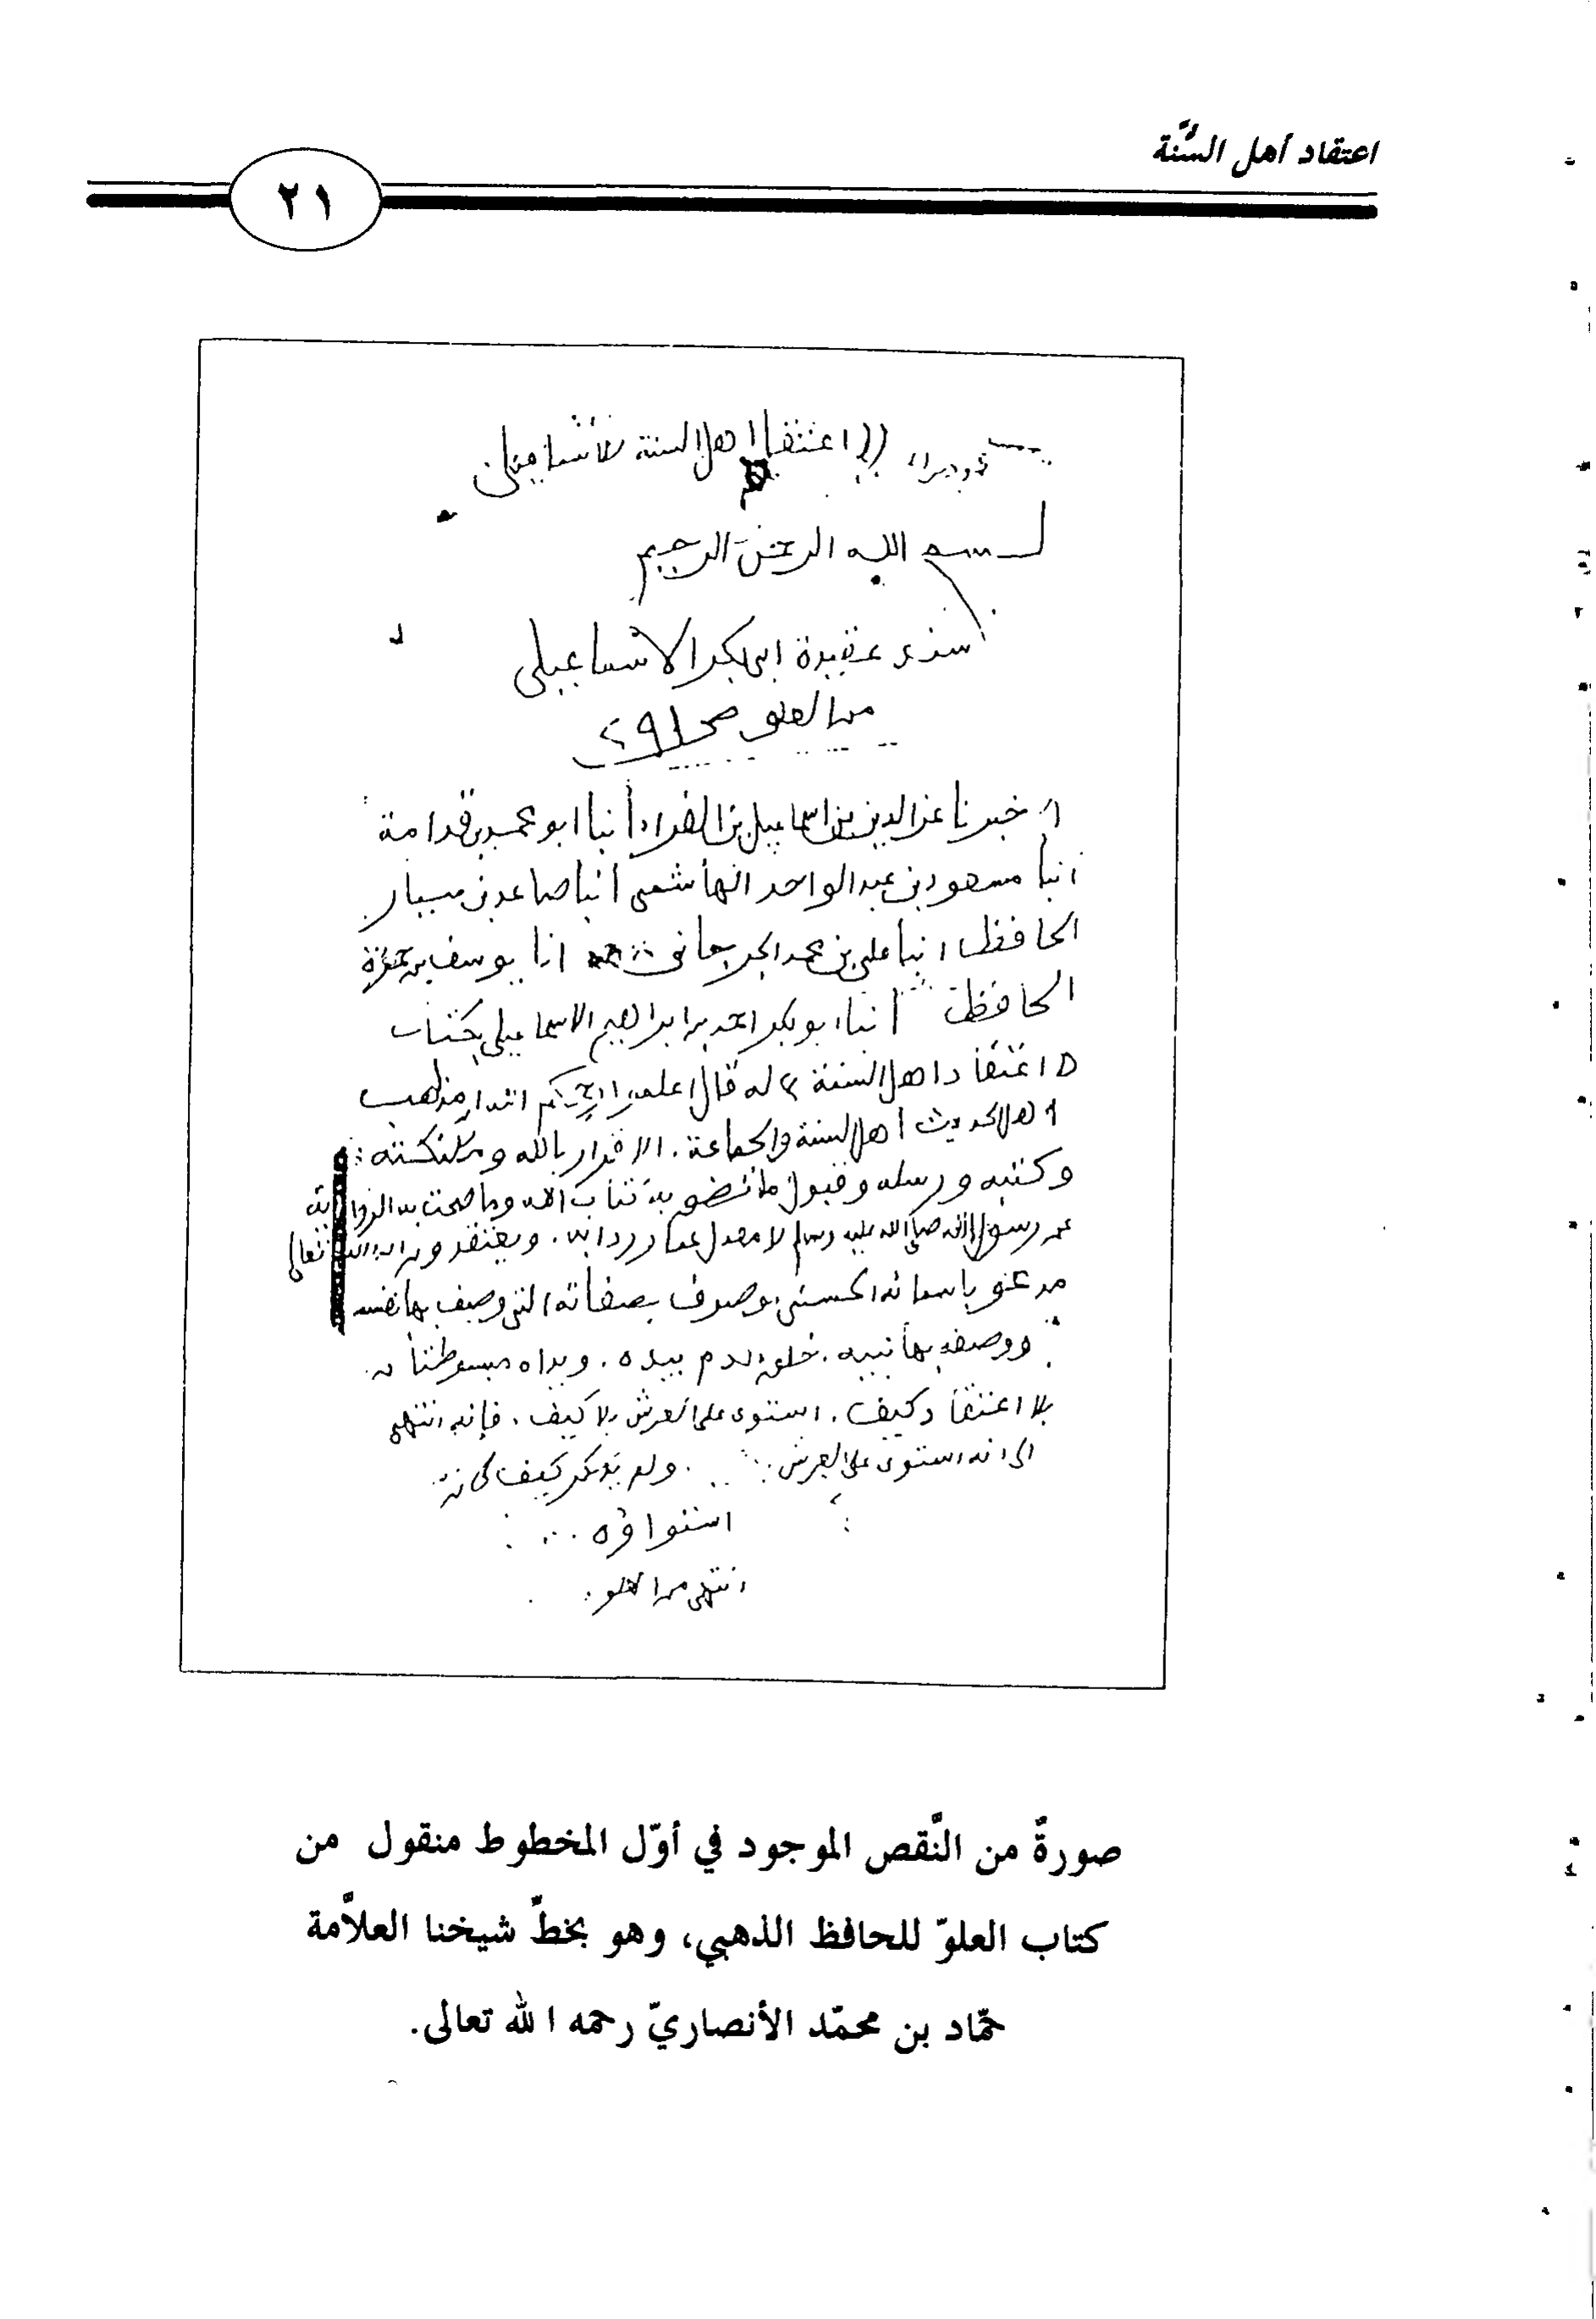 اعتقاد أهل السُّنة
٢١
(( اعتقاد اهل السنة للإسماعيلي
بسم الله الرحمن الرحيم
عقيدة ابى بكر الاسماعيلى
من العلو صـ
اخبرنا عز الدين بن اسماعيل بن الفراء أنبا ابو محمد بن قدامة
أنبا مسعود بن عبد الواحد الهاشمى أنبا صاعد بن سيار
الحافظ انبا على بن محمد الجرجانى انا يوسف بن حمزة
الحافظ أنبا ابو بكر احمد بن ابراهيم الاسماعيلى بكتاب
اعتقاد اهل السنة له قال اعلموا رحمكم الله ان مذهب
اهل الحديث أهل السنة والجماعة . الاقرار بالله وملائكته
وكتبه ورسله وقبول ما نطق به كتاب الله وما صحت به الرواية
عن رسول الله صلى الله عليه وسلم لا معدل عما ورد به . ويعتقدون ان الله تعالى
مدعو باسمائه الحسنى موصوف بصفاته التى وصف بها نفسه
ووصفه بها نبيه . خلق ادم بيده . ويداه مبسوطتان
بلا اعتقاد كيف . استوى على العرش بلا كيف . فإنه انتهى
الى انه استوى على العرش . ولم يذكر كيف كان
استواؤه ...
انتهى من العلو
صورةٌ من النَّقص الموجود في أوّل المخطوط منقول من
كتاب العلوّ للحافظ الذهبي، وهو بخطِّ شيخنا العلاَّمة
حمّاد بن محمّد الأنصاريّ رحمه الله تعالى.